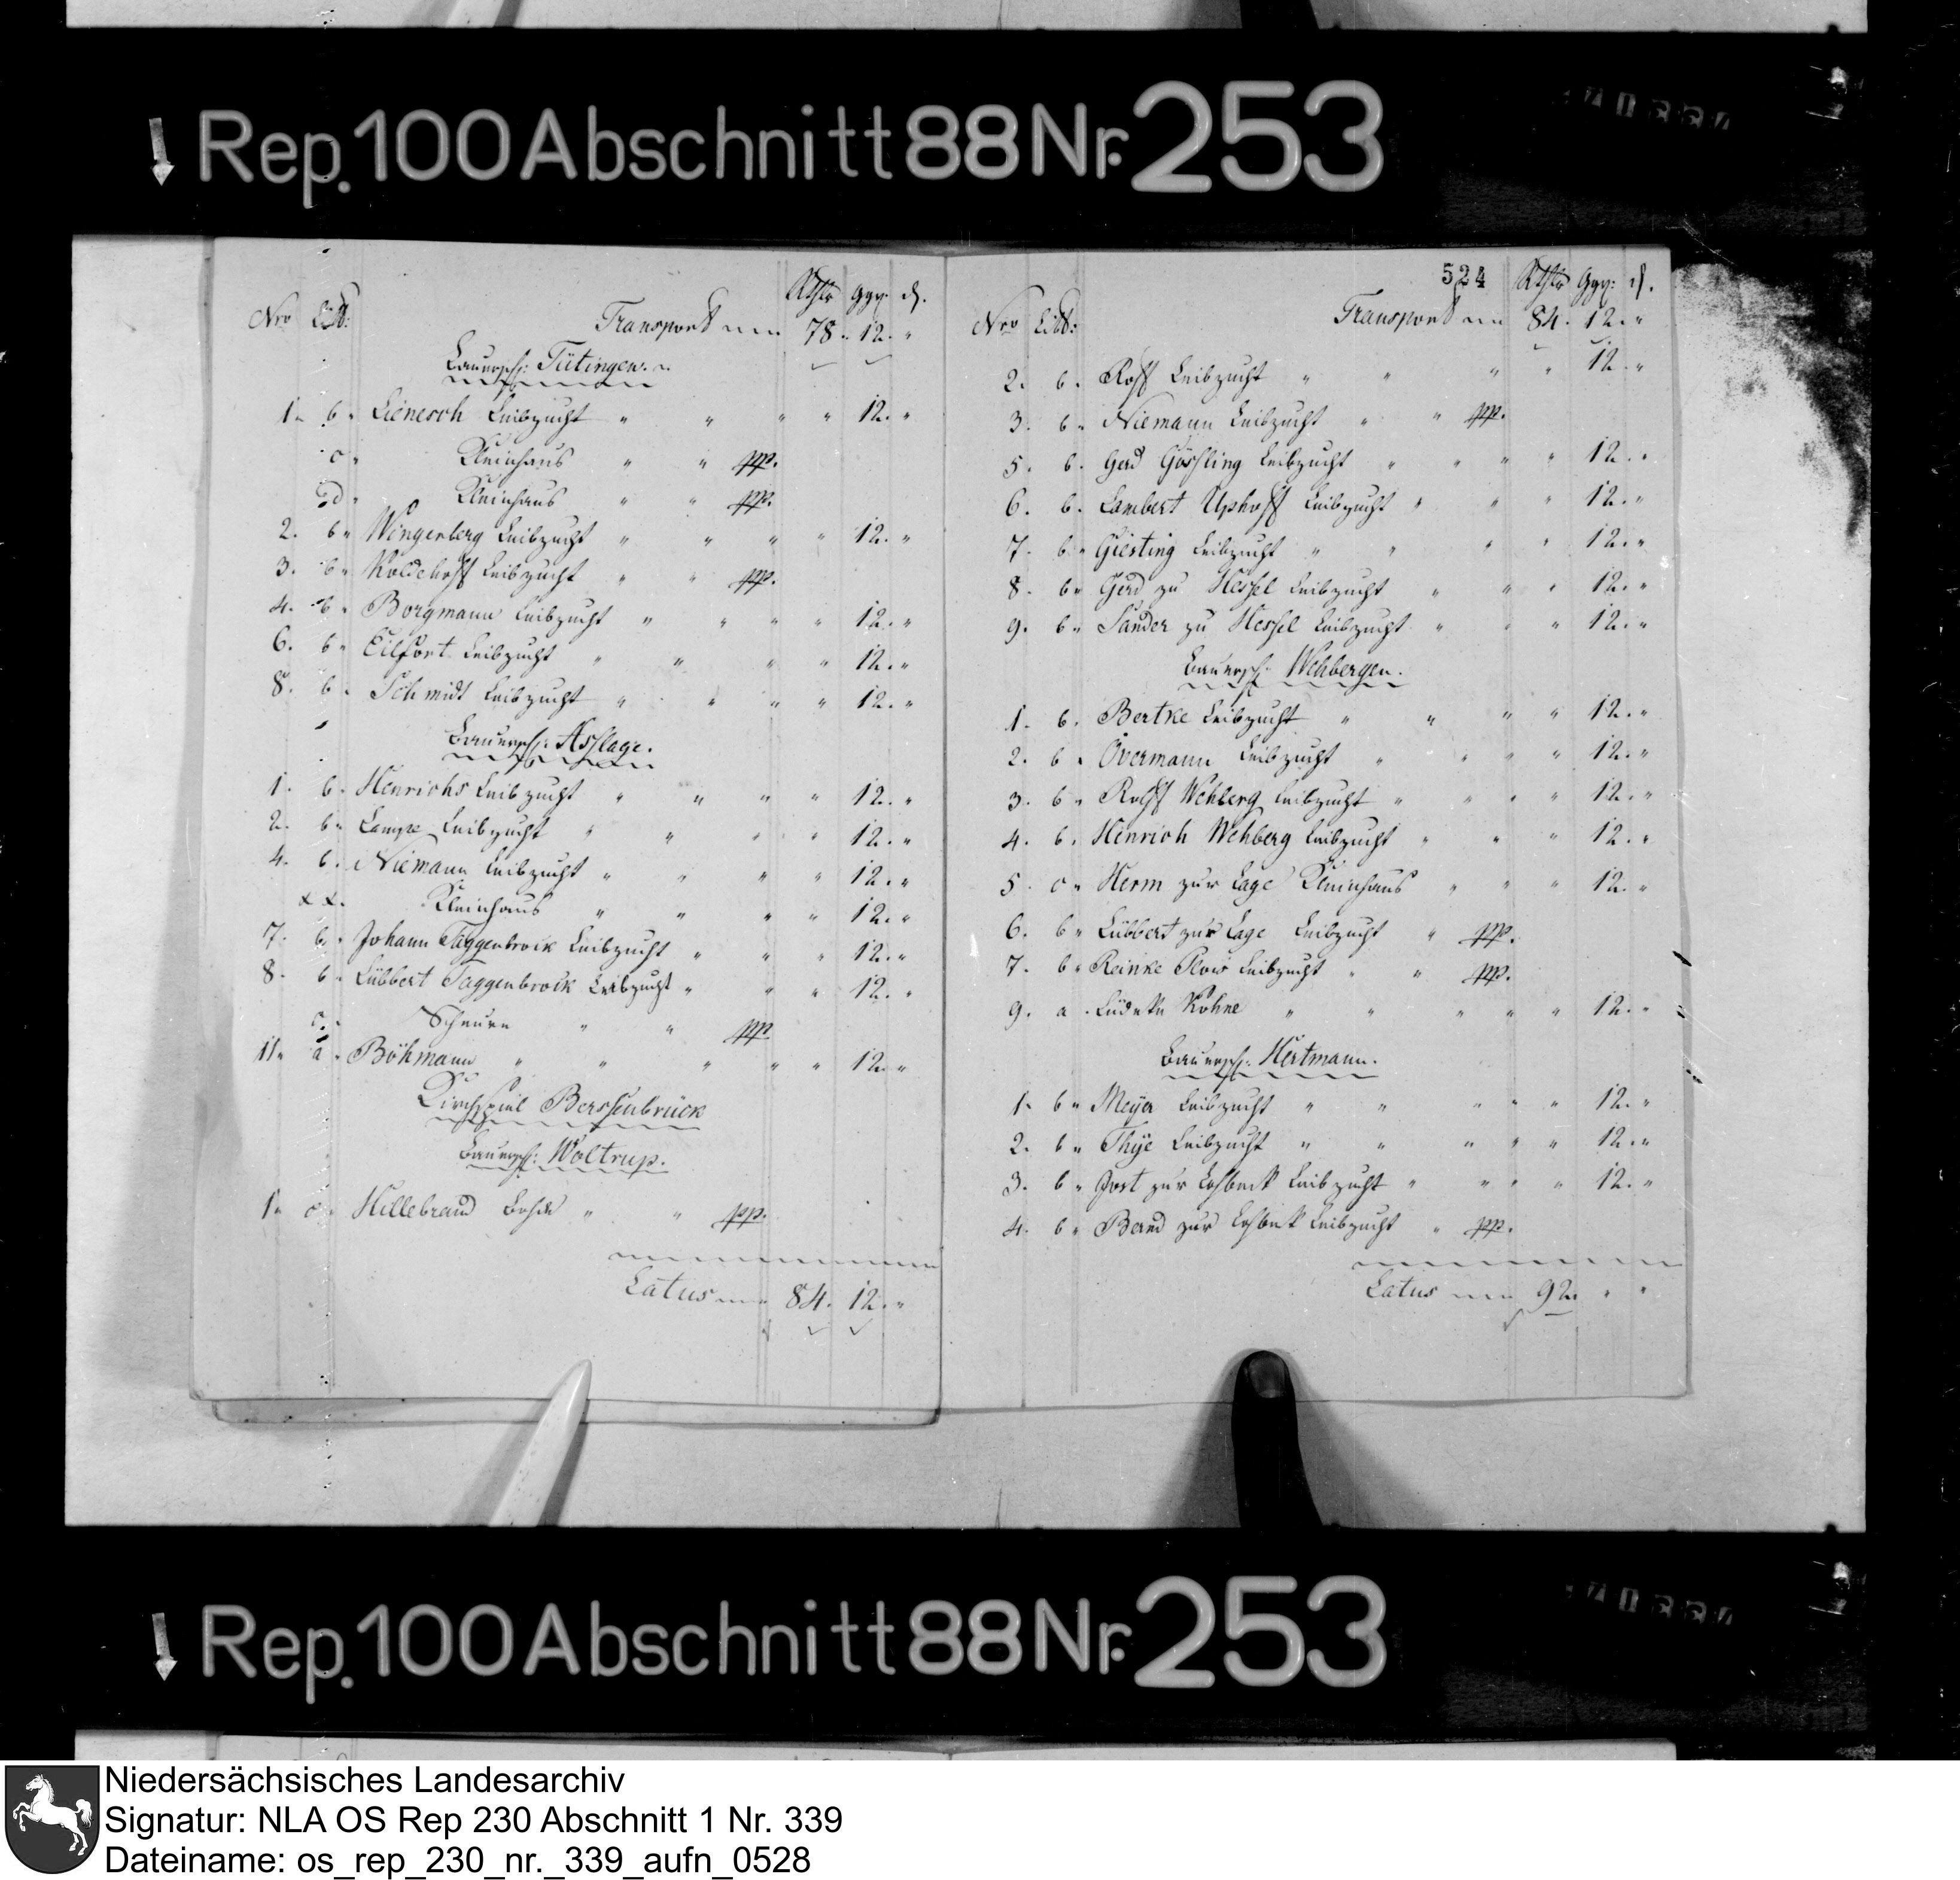 Rep. 100 Abschnitt 88 Nr. 253
Nro Litt: Rthlr ggr: d.
Transport 78. 12. "
Bauersch: Tütingen.
1. b. Lienesch Leibzucht " " " " 12. "
c. Kleinhaus " " pp.
d. Kleinhaus " " pp.
2. b. Wingenberg Leibzucht " " " " 12. "
3. b. Koldehoff Leibzucht " " pp.
4. b. Borgmann Leibzucht " " " " 12. "
6. b. Eilfort Leibzucht " " " " 12. "
8. b. Schmidt Leibzucht " " " " 12. "
Bauersch: Asslage.
1. b. Henrichs Leibzucht " " " " 12. "
2. b. Lampe Leibzucht " " " " 12. "
4. b. Niemann Leibzucht " " " " 12. "
Kleinhaus " " " " 12. "
7. b. Johann Taggenbrock Leibzucht " " " " 12. "
8. b. Lübbert Taggenbrock Leibzucht " " " 12. "
c. Scheure " " pp
11. a. Böhmann " " " " " 12. "
Kirchspiel Berssenbrück
Bauersch: Woltrup.
1. c. Hillebrand " " pp.
Latus 84. 12. "
524
Nro Litt: Rthlr ggr: d.
Transport 84. 12. "
2. b. Rolf Leibzucht " " " " 12. "
3. b. Niemann Leibzucht " " pp.
5. b. Gerd Gössling Leibzucht " " " " 12. "
6. b. Lambert Uphoff Leibzucht " " " 12. "
7. b. Giesting Leibzucht " " " " 12. "
8. b. Gerd zu Hessel Leibzucht " " " 12. "
9. b. Sander zu Hessel Leibzucht " " " 12. "
Bauersch: Wehbergen.
1. b. Bertke Leibzucht " " " " 12. "
2. b. Overmann Leibzucht " " " " 12. "
3. b. Rolff Wehberg Leibzucht " " " " 12. "
4. b. Henrich Wehberg Leibzucht " " " 12. "
5. c. Herm zur Lage Kleinhaus " " " 12. "
6. b. Lübbert zur Lage Leibzucht " pp.
7. b. Reinke Leibzucht " " pp.
9. a. Lüdeke Kohne " " " " " 12. "
Bauersch: Hertmann.
1. b. Meyer Leibzucht " " " " " 12. "
2. b. Thye Leibzucht " " " " " 12. "
3. b. Jost zur Leibzucht " " " " 12. "
4. b. Bernd zur Leibzucht " pp.
Latus 92. " "
Rep. 100 Abschnitt 88 Nr. 253
Niedersächsisches Landesarchiv
Signatur: NLA OS Rep 230 Abschnitt 1 Nr. 339
Dateiname: os_rep_230_nr._339_aufn_0528